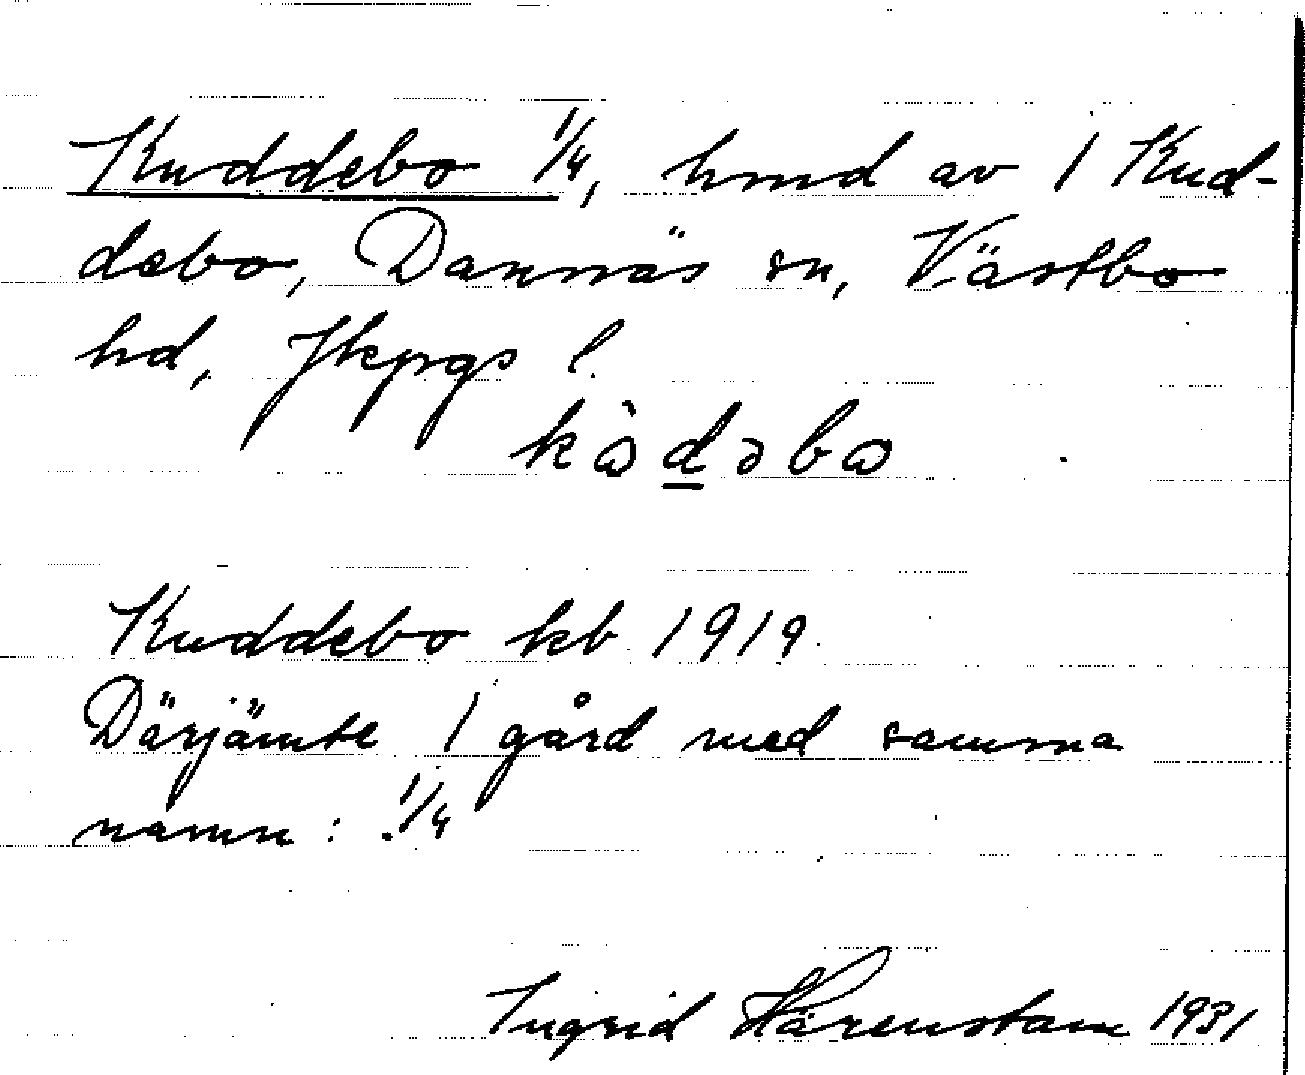 Kuddebo 1/4, hmd av 1 Kud-
debo, Dannäs sn, Västbo
hd, Jkpgs l.
kὼdəbω
Kuddebo kb 1919
Därjämte 1 gård med samma
namn: 1/4
Ingrid Härenstam 1931